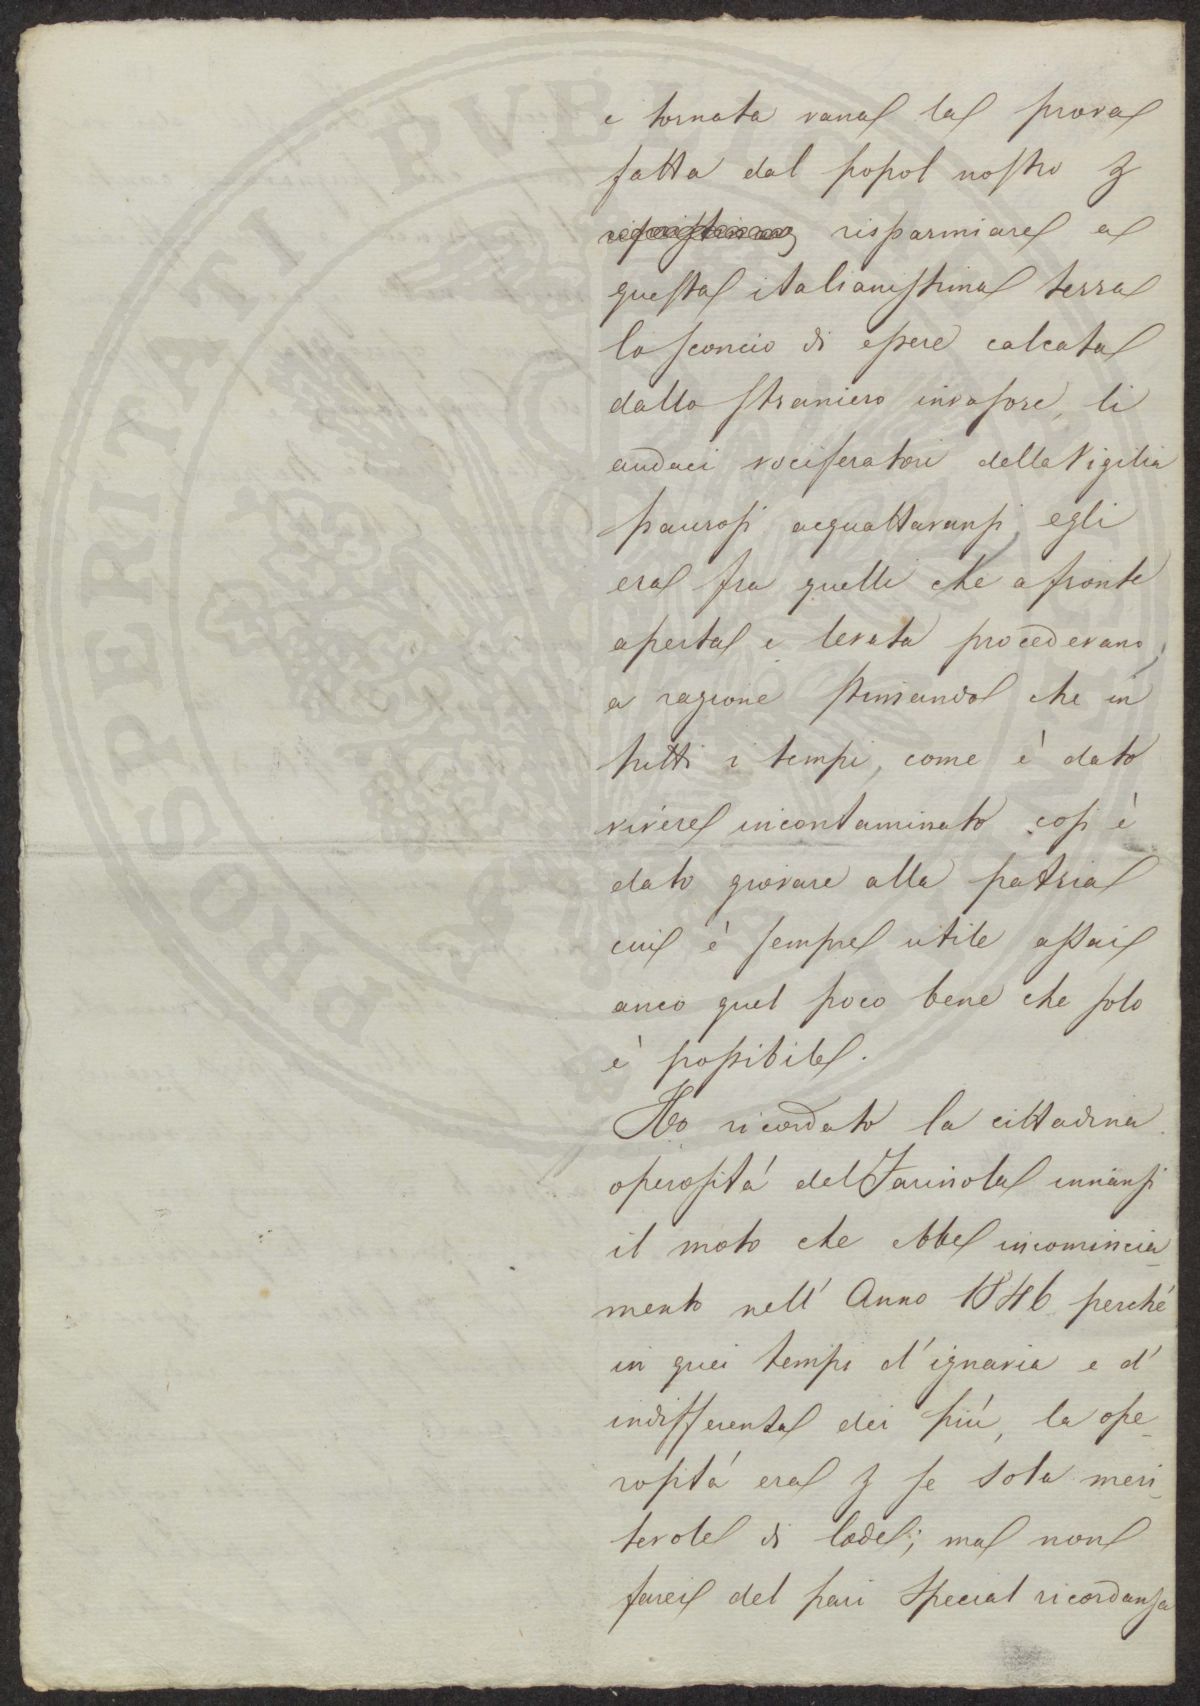 e tornata vana la prova
fatta dal popol nostro p
risparmiare a
questa italianissima terra
lo sconcio di essere calcata
dallo straniero invasore, li
audaci vociferatori della Vigilia
paurosi acquattavansi, egli
era fra quelli che a fronte
aperta e levata procedevano,
a ragione pensando che in
tutti i tempi, come è dato
vivere incontaminato così è
dato giovare alla patria
cui è sempre utile assai
anco quel poco bene che solo
è possibile.
Ho ricordato la cittadina
operosità del Farinola innanzi
il moto che ebbe incomincia
mento nell' Anno 1846 perchè
in quei tempi d' ignavia e d'
indifferenza dei più, la ope-
rosità era p se sola meri
tevole di lode; ma non
farei del pari special ricordanza
PROSPERITATI PVBLICAE